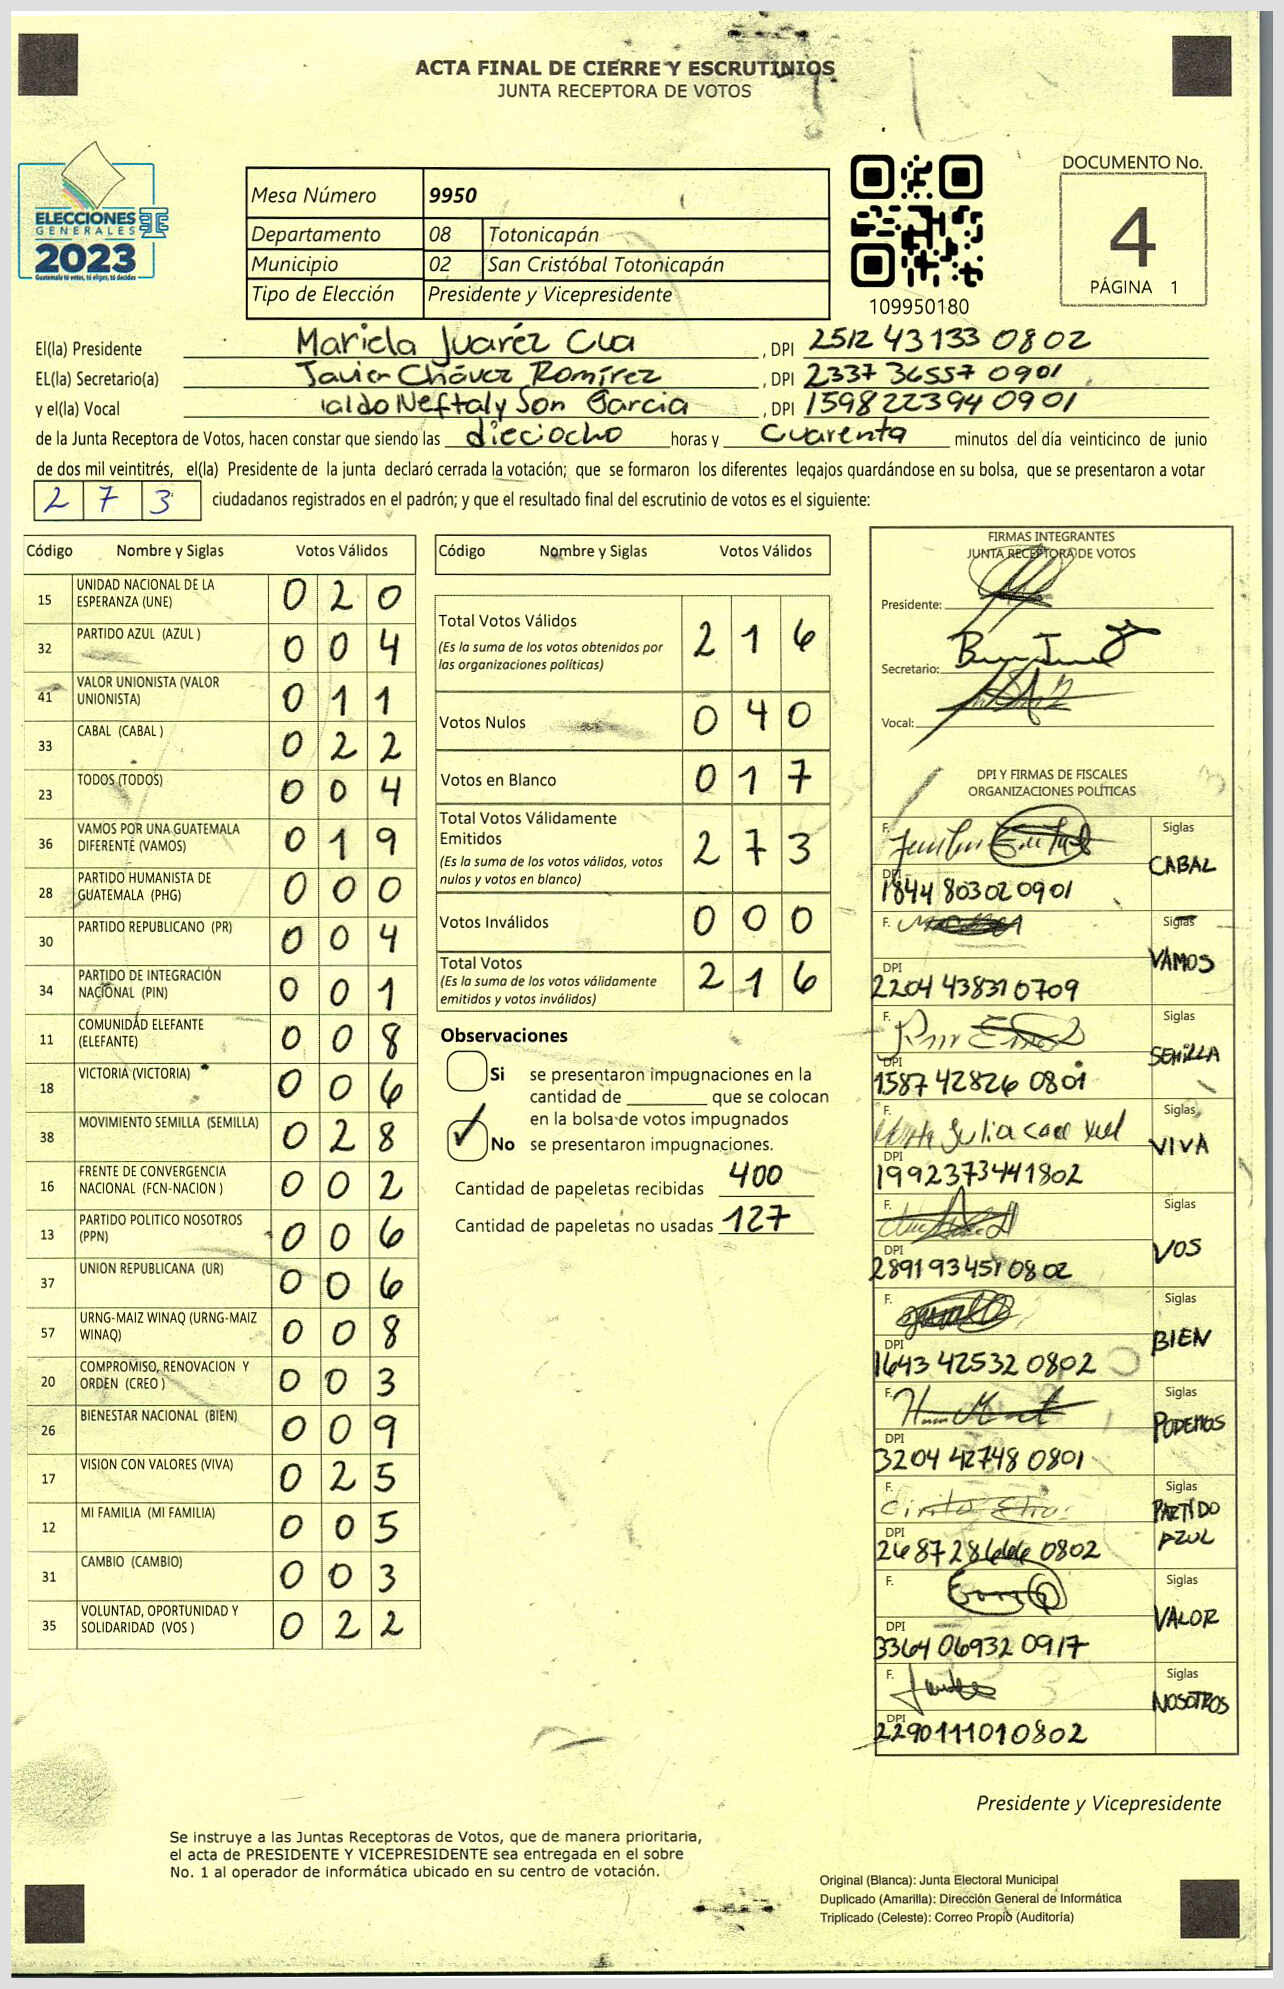 ACTA FINAL DE CIERRE Y ESCRUTINIOS
JUNTA RECEPTORA DE VOTOS
ELECCIONES
GENERALES
2023
Guatemala tú votas, tú eliges, tú decides
Mesa Número 9950
Departamento 08 Totonicapán
Municipio 02 San Cristóbal Totonicapán
Tipo de Elección Presidente y Vicepresidente
109950180
DOCUMENTO No.
4
PÁGINA 1
El(la) Presidente Mariela Juaréz Cua, DPI 2512 43133 0802
EL(la) Secretario(a) Javier Chávez Ramírez, DPI 2337 36557 0901
y el(la) Vocal ialdo Neftaly Son Garcia, DPI 1598223940901
de la Junta Receptora de Votos, hacen constar que siendo las dieciocho horas y cuarenta minutos del día veinticinco de junio
de dos mil veintitrés, el(la) Presidente de la junta declaró cerrada la votación; que se formaron los diferentes legajos quardándose en su bolsa, que se presentaron a votar
273 ciudadanos registrados en el padrón; y que el resultado final del escrutinio de votos es el siguiente:
Código Nombre y Siglas Votos Válidos
15 UNIDAD NACIONAL DE LA ESPERANZA (UNE) 020
32 PARTIDO AZUL (AZUL ) 004
41 VALOR UNIONISTA (VALOR UNIONISTA) 011
33 CABAL (CABAL ) 022
23 TODOS (TODOS) 004
36 VAMOS POR UNA GUATEMALA DIFERENTE (VAMOS) 019
28 PARTIDO HUMANISTA DE GUATEMALA (PHG) 000
30 PARTIDO REPUBLICANO (PR) 004
34 PARTIDO DE INTEGRACIÓN NACIONAL (PIN) 001
11 COMUNIDAD ELEFANTE (ELEFANTE) 008
18 VICTORIA (VICTORIA) 006
38 MOVIMIENTO SEMILLA (SEMILLA) 028
16 FRENTE DE CONVERGENCIA NACIONAL (FCN-NACION ) 002
13 PARTIDO POLITICO NOSOTROS (PPN) 006
37 UNION REPUBLICANA (UR) 006
57 URNG-MAIZ WINAQ (URNG-MAIZ WINAQ) 008
20 COMPROMISO, RENOVACION Y ORDEN (CREO ) 003
26 BIENESTAR NACIONAL (BIEN) 009
17 VISION CON VALORES (VIVA) 025
12 MI FAMILIA (MI FAMILIA) 005
31 CAMBIO (CAMBIO) 003
35 VOLUNTAD, OPORTUNIDAD Y SOLIDARIDAD (VOS ) 022
Código Nombre y Siglas Votos Válidos
Total Votos Válidos 216
(Es la suma de los votos obtenidos por
las organizaciones políticas)
Votos Nulos 040
Votos en Blanco 017
Total Votos Válidamente
Emitidos 273
(Es la suma de los votos válidos, votos
nulos y votos en blanco)
Votos Inválidos 000
Total Votos 216
(Es la suma de los votos válidamente
emitidos y votos inválidos)
Observaciones
Si se presentaron impugnaciones en la
cantidad de ________ que se colocan
en la bolsa de votos impugnados
✓ No se presentaron impugnaciones.
Cantidad de papeletas recibidas 400
Cantidad de papeletas no usadas 127
FIRMAS INTEGRANTES
JUNTA RECEPTORA DE VOTOS
Presidente:
Secretario:
Vocal:
DPI Y FIRMAS DE FISCALES
ORGANIZACIONES POLÍTICAS
F. Siglas
CABAL
DPI
1844 80302 0901
F. Siglas
VAMOS
DPI
2204 43831 0709
F. Siglas
SEMILLA
DPI
1587 42826 0801
F. Siglas
VIVA
DPI
1992373441802
F. Siglas
VOS
DPI
2891934510802
F. Siglas
BIEN
DPI
1643 42532 0802
F. Siglas
PODEMOS
DPI
3204 42748 0801
F. Siglas
PARTIDO
AZUL
DPI
2687286660802
F. Siglas
VALOR
DPI
3364 06932 0917
F. Siglas
NOSOTROS
DPI
2290111010802
Presidente y Vicepresidente
Se instruye a las Juntas Receptoras de Votos, que de manera prioritaria,
el acta de PRESIDENTE Y VICEPRESIDENTE sea entregada en el sobre
No. 1 al operador de informática ubicado en su centro de votación.
Original (Blanca): Junta Electoral Municipal
Duplicado (Amarilla): Dirección General de Informática
Triplicado (Celeste): Correo Propio (Auditoría)